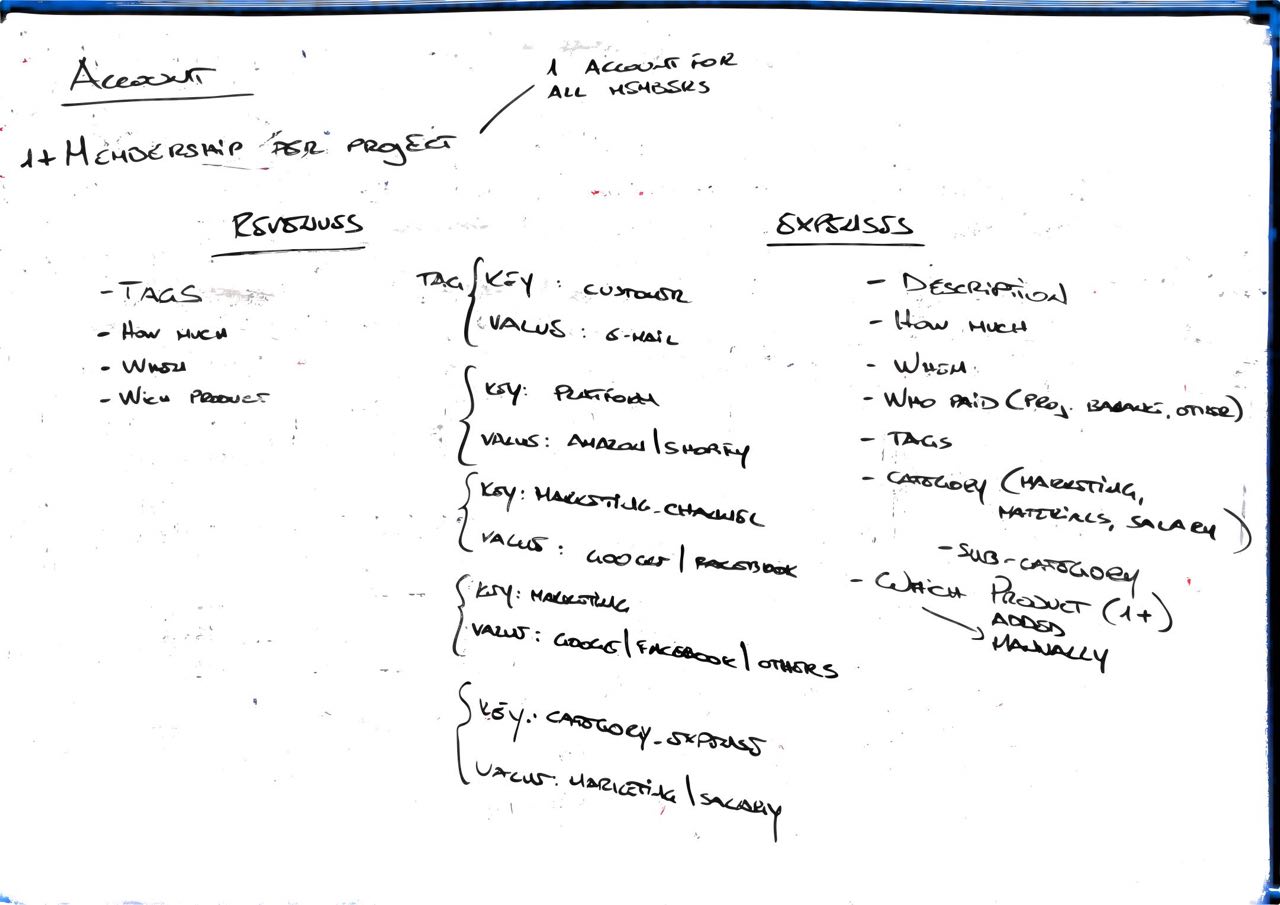 ACCOUNT
1 ACCOUNT FOR
ALL MEMBERS
1+ MEMBERSHIP PER PROJECT
REVENUES
- TAGS
- HOW MUCH
- WHEN
- WICH PRODUCT
TAG { KEY : CUSTOMER
VALUE : E-MAIL
{ KEY: PLATFORM
VALUE: AMAZON | SHOPIFY
{ KEY: MARKETING_CHANNEL
VALUE: GOOGLE | FACEBOOK
{ KEY: MARKETING
VALUE: GOOGLE | FACEBOOK | OTHERS
{ KEY: CATEGORY_EXPENSE
VALUE: MARKETING | SALARY
EXPENSES
- DESCRIPTION
- HOW MUCH
- WHEN
- WHO PAID (PROJ. BALANCE, OTHER)
- TAGS
- CATEGORY (MARKETING,
MATERIALS, SALARY)
- SUB-CATEGORY
- WHICH PRODUCT (1+)
ADDED
MANUALLY